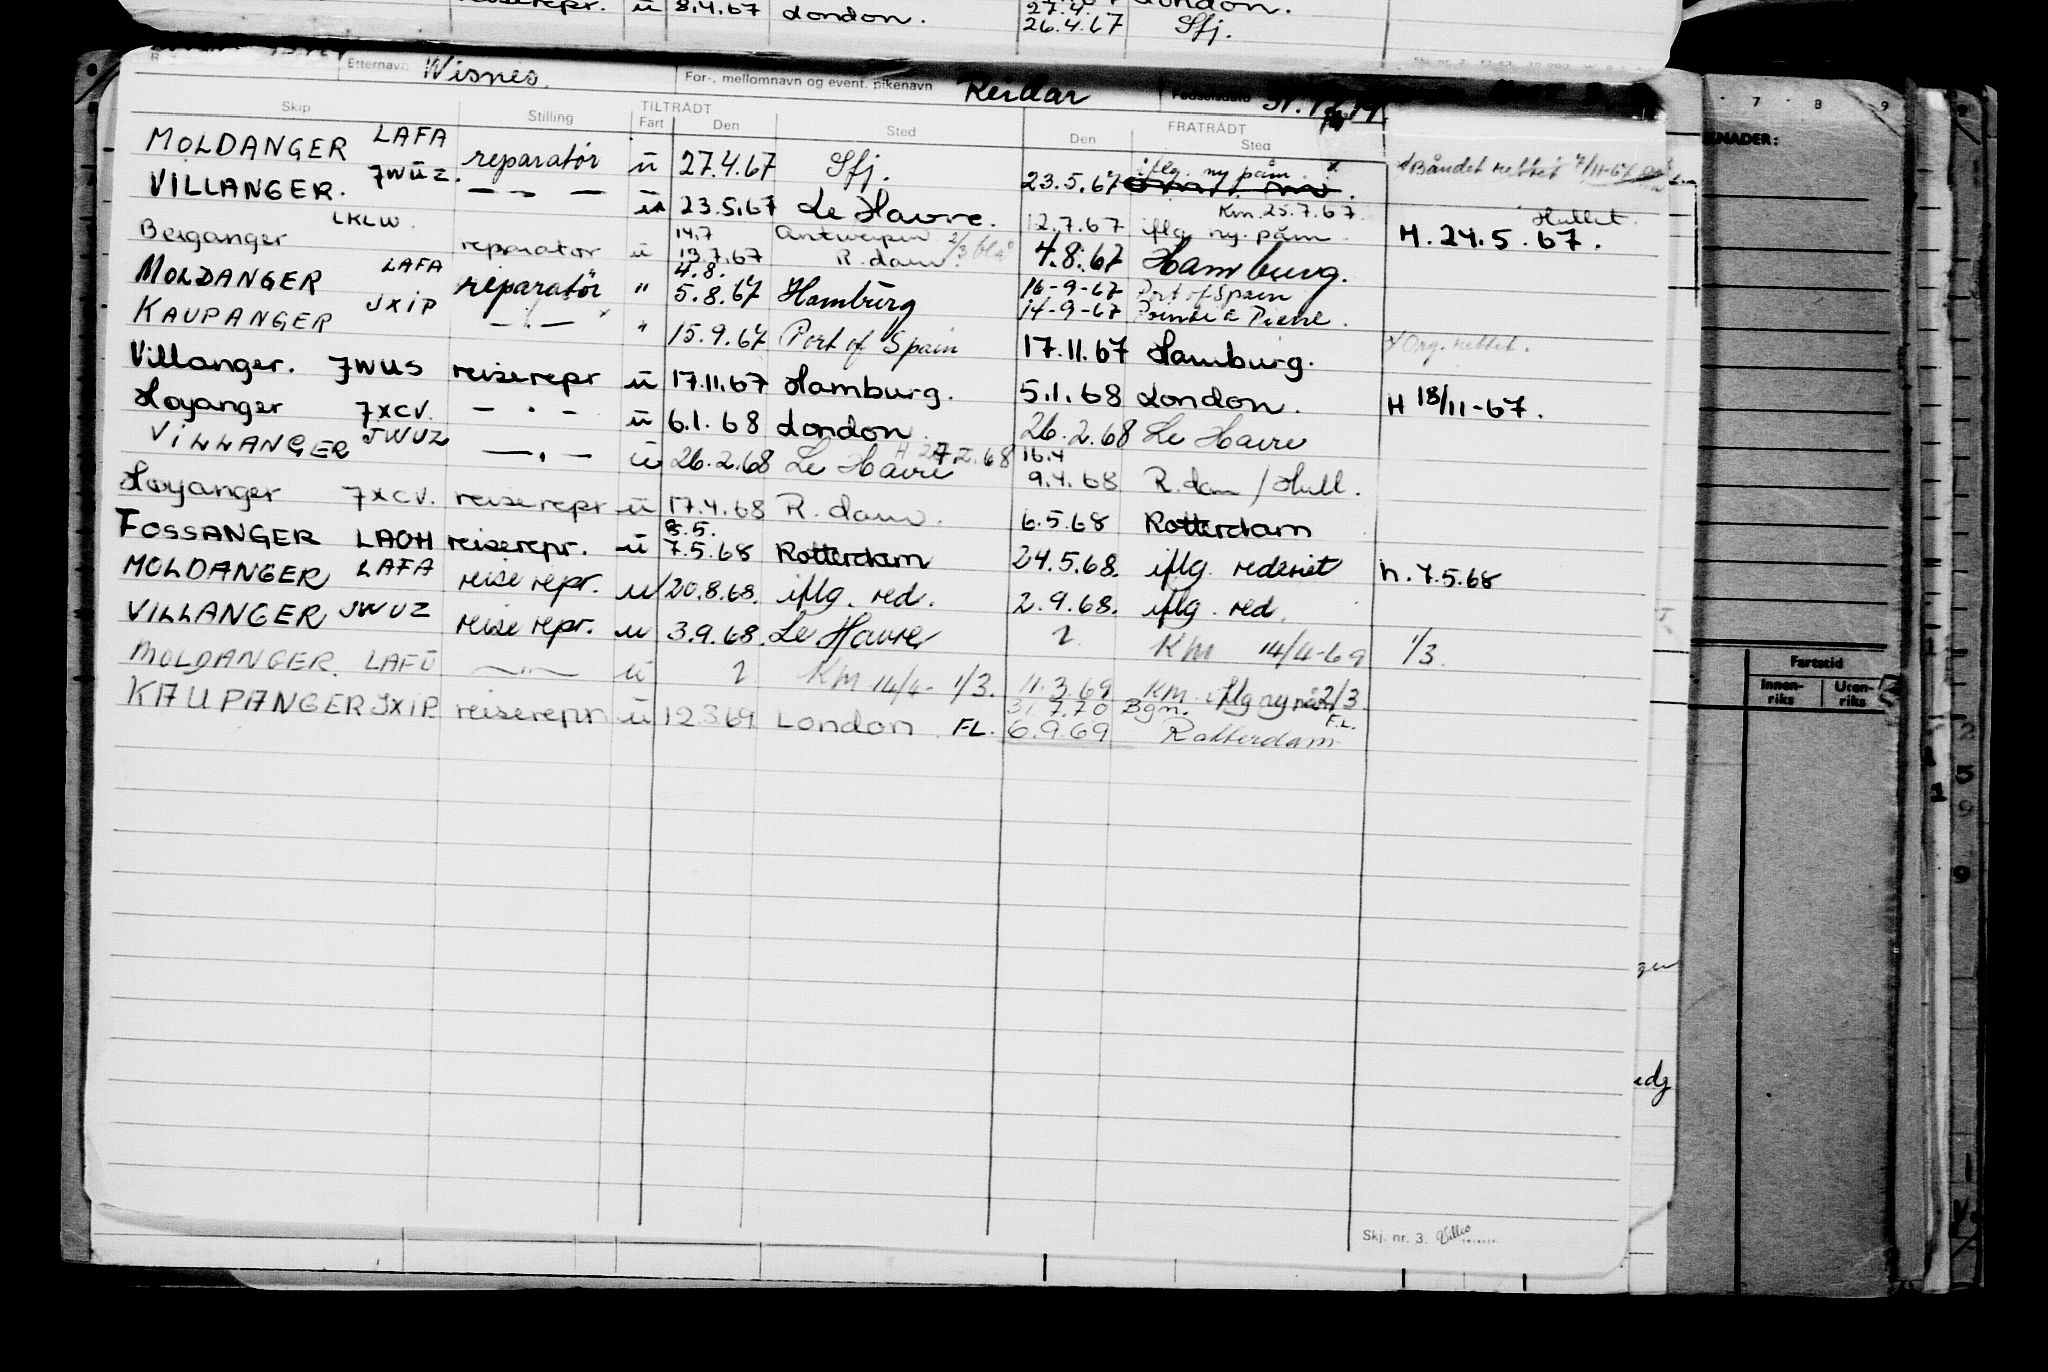 reiserepr. ü 8.4.67 London. 27.4. London.
26.4.67 Sfj.
Etternavn Wisnes. For-, mellomnavn og event. pikenavn Reidar Fødselsdato
Skip Stilling TILTRÅDT FRATRÅDT
Fart Den Sted Den Sted
MOLDANGER LAFA reparatør ü 27.4.67 Sfj. 23.5.67 iflg. ny påm. x
VILLANGER. JWUZ. — — ü 23.5.67 Le Havre. 12.7.67 Km. 25.7.67 iflg. ny. påm. H. 24.5.67.
Berganger LKLW. reparatør ü 14.7 13.7.67 Antwerpen R.dam. 4.8.67 Hamburg.
MOLDANGER LAFA reparatør " 4.8. 5.8.67 Hamburg 16-9-67 Port of Spain
14-9-67 Pointe a Pierre.
KAUPANGER JXIP — . — " 15.9.67 Port of Spain 17.11.67 Hamburg. x Org. rettet.
Villanger. JWUS reiserepr ü 17.11.67 Hamburg. 5.1.68 London. H 18/11-67.
Høyanger JXCV. — . — ü 6.1.68 London 26.2.68 Le Havre
VILLANGER JWUZ — . — ü 26.2.68 Le Havre H 27.2.68 16.4 9.4.68 R.dam / Hull.
Høyanger JXCV. reiserepr ü 17.4.68 R.dam. 6.5.68 Rotterdam
FOSSANGER LAOH reiserepr. ü 8.5. 7.5.68 Rotterdam 24.5.68. iflg. rederiet h. 7.5.68
MOLDANGER LAFA reise repr. u 20.8.68. iflg. red. 2.9.68. iflg. red.
VILLANGER JWUZ reise repr. u 3.9.68. Le Havre ? KM 14/4-69 1/3.
MOLDANGER. LAFÜ — " — ü ? KM 14/4- 1/3. 11.3.69 KM. iflg ny påm 2/3
31.7.70 Bgn. F.L.
KAUPANGER JXIP reiserepr ü 12.3.69 London FL. 6.9.69 Rotterdam
Skj. nr. 3.
7 8 9
KNADER:
Fartstid
Innen-riks Uten-riks